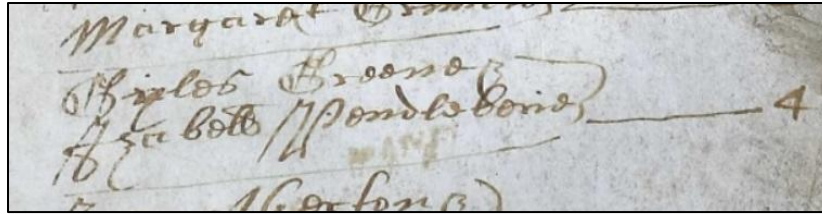 Margaret
Gyles Greene
Izabell Pendleberie 4